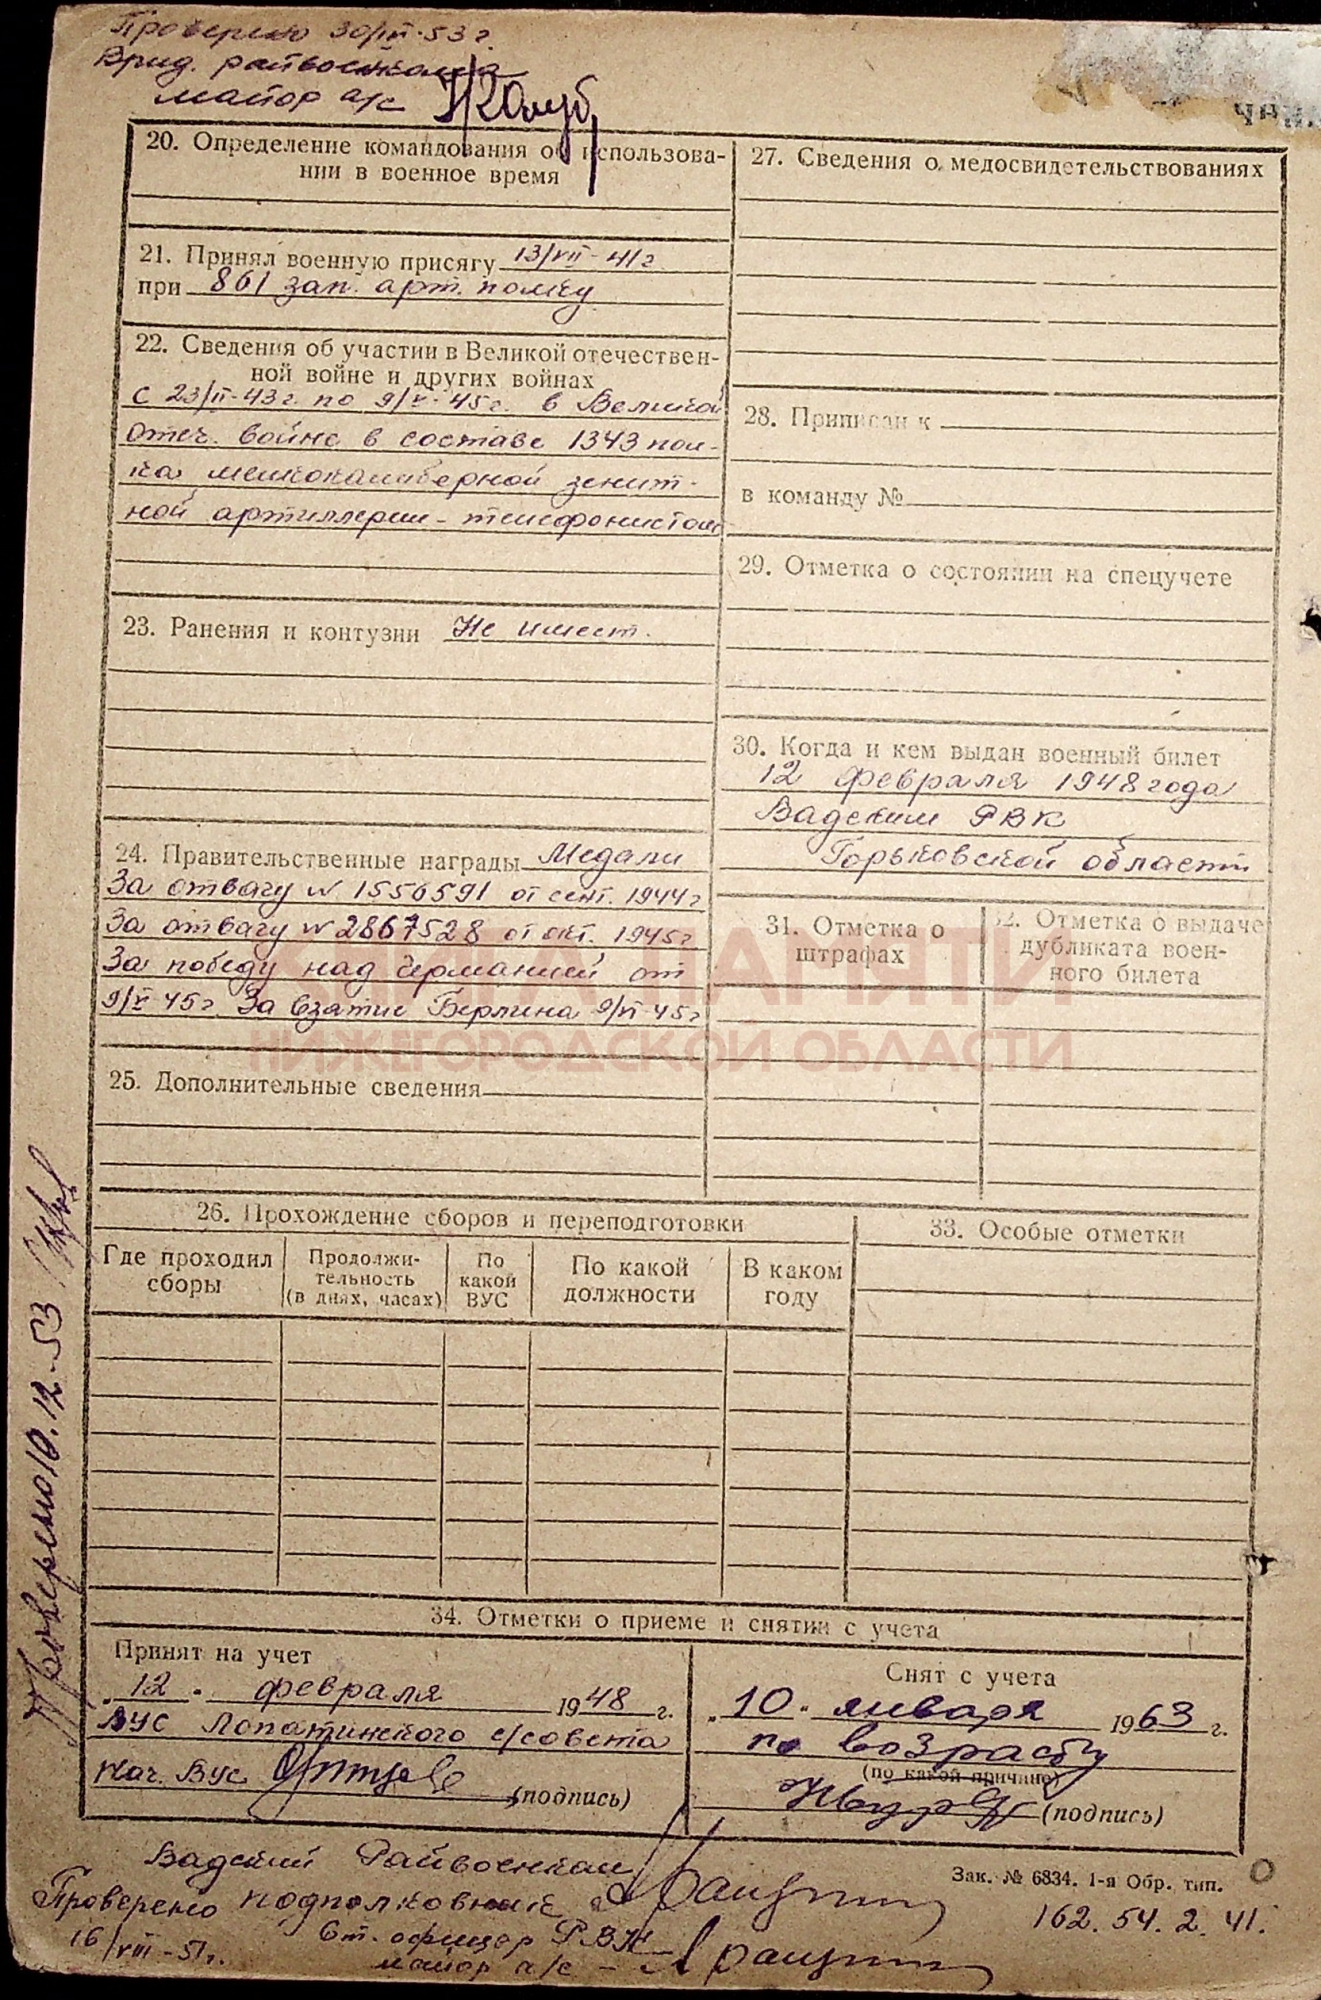 Проверено 30/III-53 г.
Врид. райвоенкома
майор а/с
20. Определение командования об использова-
нии в военное время
21. Принял военную присягу 13/VII-41 г
при 861 зап. арт. полку
22. Сведения об участии в Великой отечествен-
ной войне и других войнах
С 23/II-43 г. по 9/V-45 г. в Великой
отеч. войне в составе 1343 пол-
ка мелкокалиберной зенит-
ной артиллерии - телефонистом
23. Ранения и контузии Не имеет.
24. Правительственные награды Медали
За отвагу № 1550591 от сент. 1944 г
За отвагу № 2867528 от окт. 1945 г
За победу над Германией от
9/V 45 г. За взятие Берлина 9/VI-45 г
25. Дополнительные сведения
27. Сведения о медосвидетельствованиях
28. Приписан к
в команду №
29. Отметка о состоянии на спецучете
30. Когда и кем выдан военный билет
12 февраля 1948 года
Вадским РВК
Горьковской области
31. Отметка о
штрафах
32. Отметка о выдаче
дубликата воен-
ного билета
КНИГА ПАМЯТИ
НИЖЕГОРОДСКОЙ ОБЛАСТИ
26. Прохождение сборов и переподготовки
Где проходил
сборы
Продолжи-
тельность
(в днях, часах)
По
какой
ВУС
По какой
должности
В каком
году
33. Особые отметки
34. Отметки о приеме и снятии с учета
Принят на учет
„12" февраля 1948 г.
ВУС Лопатинского с/совета
Нач. ВУС (подпись)
Снят с учета
„10" января 1963 г.
по возрасту
(по какой причине)
(подпись)
Проверено 10.12-53
Вадский Райвоенком
Проверено подполковник
16/VIII-51 г.
Ст. офицер РВК
майор а/с -
Зак. № 6834. 1-я Обр. тип.
162. 54. 2. 41.